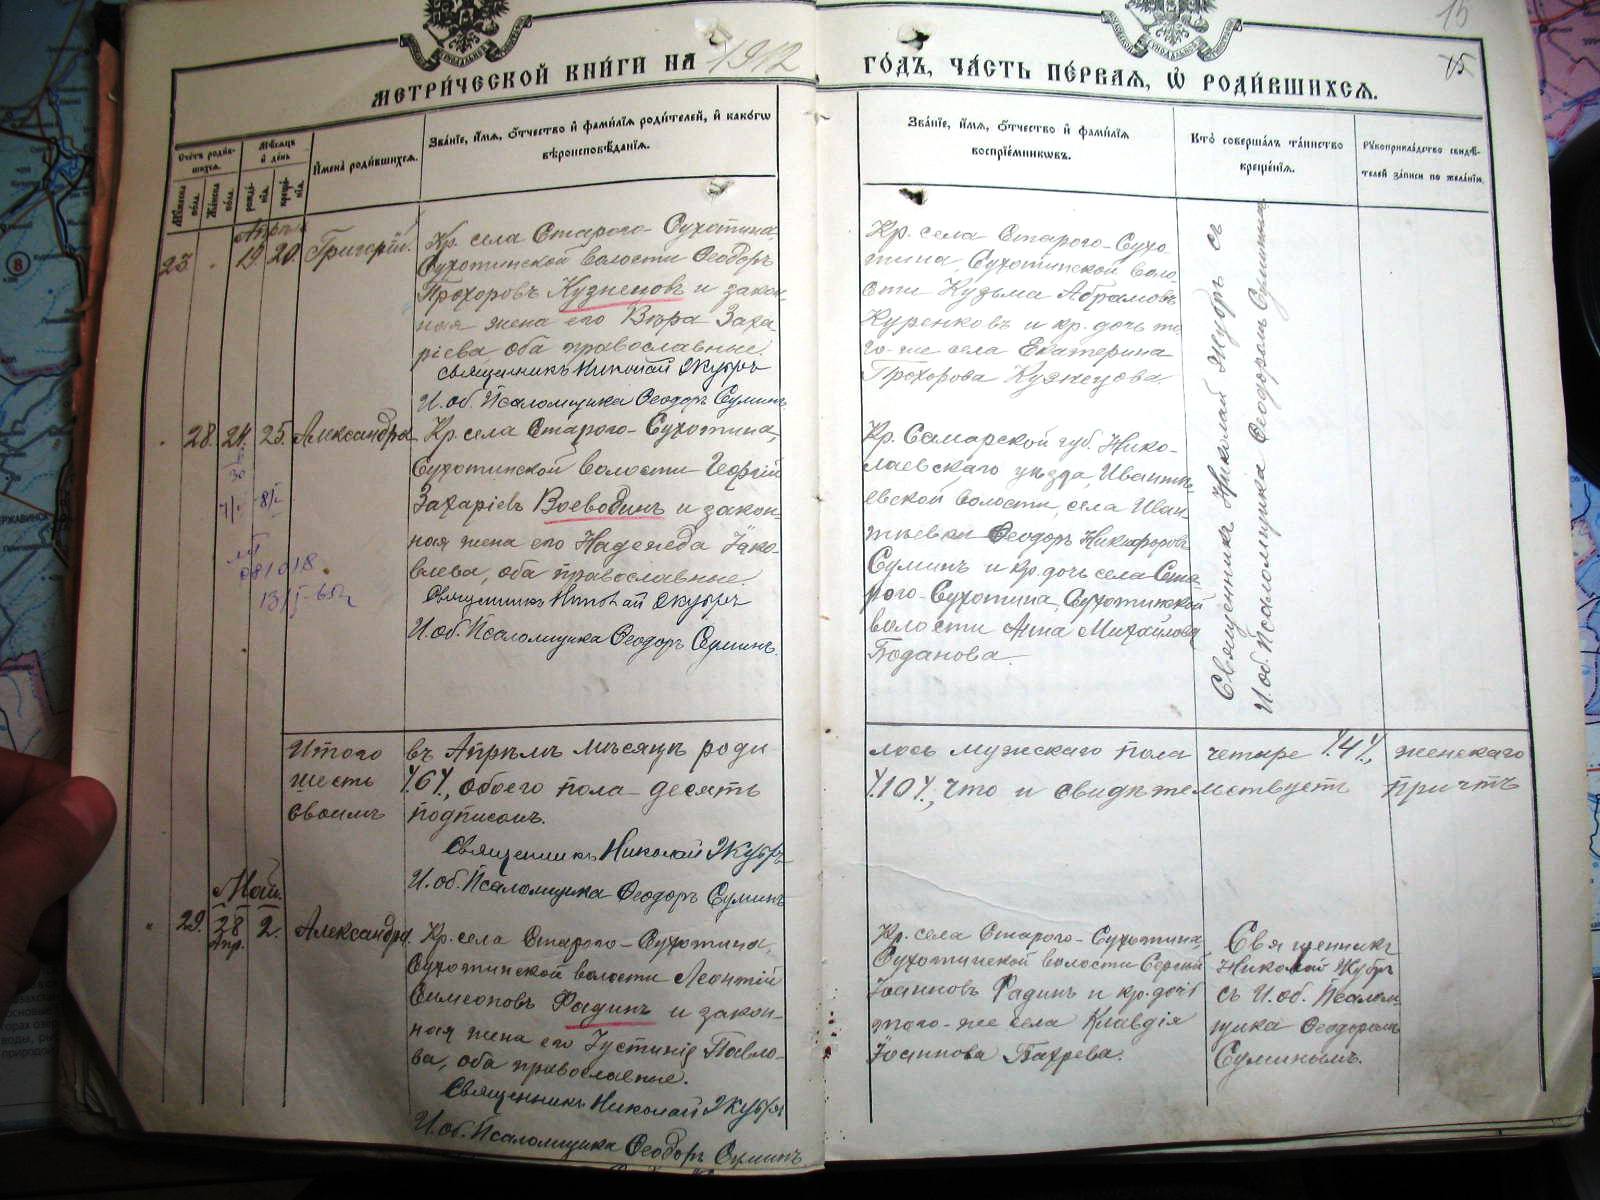 МЕТРИ́ЧЕСКОЙ КНИ́ГИ НА 1912
ГО́ДЪ, ЧА́СТЬ ПЕ́РВАѦ, Ѡ҆ РОДИ́ВШИХСѦ.
15
15
Сче́тъ роди́в-
шихсѧ.
Мꙋ́жеска по́ла
Же́нска по́ла
Мѣ́сѧцъ и҆ де́нь
рожде́-
нїѧ.
креще́-
нїѧ.
И҆мена̀ роди́вшихсѧ.
Зва́нїе, и҆́мѧ, ѻ҆́тчество и҆ фамі́лїѧ роди́телей, и҆ како́гѡ
вѣроисповѣ́данїѧ.
Зва́нїе, и҆́мѧ, ѻ҆́тчество и҆ фамі́лїѧ
воспрїе́мникѡвъ.
Кто̀ соверша́лъ та́инство
креще́нїѧ.
Рꙋкоприкла́дство свидѣ́-
телей за́писи по жела́нїю.
Апрѣль
23. 19 20 Григорій.
Кр. села Старого-Сухотина,
Сухотинской волости Ѳеодоръ
Прохоровъ Кузнецовъ и закон-
ная жена его Вѣра Заха-
ріева, оба православные.
Священникъ Николай Жубръ
И. об. Псаломщика Ѳеодоръ Суминъ
Кр. села Старого-Сухо-
тина, Сухотинской воло-
сти Кузьма Абрамовъ
Куренковъ и кр. дочь то-
го-же села Екатерина
Прохорова Кузнецова.
Священникъ Николай Жубръ съ
И. об. Псаломщика Ѳеодоромъ Суминымъ
28. 24. 25. Александра
Кр. села Старого-Сухотина,
Сухотинской волости Георгій
Захаріевъ Воеводинъ и закон-
ная жена его Надежда Іако-
влева, оба православные.
Священникъ Николай Жубръ
И. об. Псаломщика Ѳеодоръ Суминъ.
081018
Кр. Самарской губ. Нико-
лаевскаго уѣзда, Ивантѣ-
евской волости, села Иван-
тѣевки Ѳеодоръ Никифоровъ
Суминъ и кр. дочь села Ста-
рого-Сухотина, Сухотинской
волости Анна Михайлова
Богданова.
Итого въ Апрѣлѣ мѣсяцѣ роди-
лось мужскаго пола четыре /.4/., женскаго
шесть /.6/., обоего пола десять
/.10/., что и свидѣтельствуетъ причтъ
своимъ подписомъ.
Священникъ Николай Жубръ
И. об. Псаломщика Ѳеодоръ Суминъ
Май.
29. 28 2. Александра.
Апр.
Кр. села Старого-Сухотина,
Сухотинской волости Леонтій
Симеоновъ Фадинъ и закон-
ная жена его Іустинія Павло-
ва, оба православные.
Священникъ Николай Жубръ
И. об. Псаломщика Ѳеодоръ Суминъ
Кр. села Старого-Сухотина,
Сухотинской волости Сергій
Іоанновъ Фадинъ и кр. дочь
того-же села Клавдія
Іоаннова
Священникъ
Николай Жубръ
съ И. об. Псалом-
щика Ѳеодоромъ
Суминымъ.